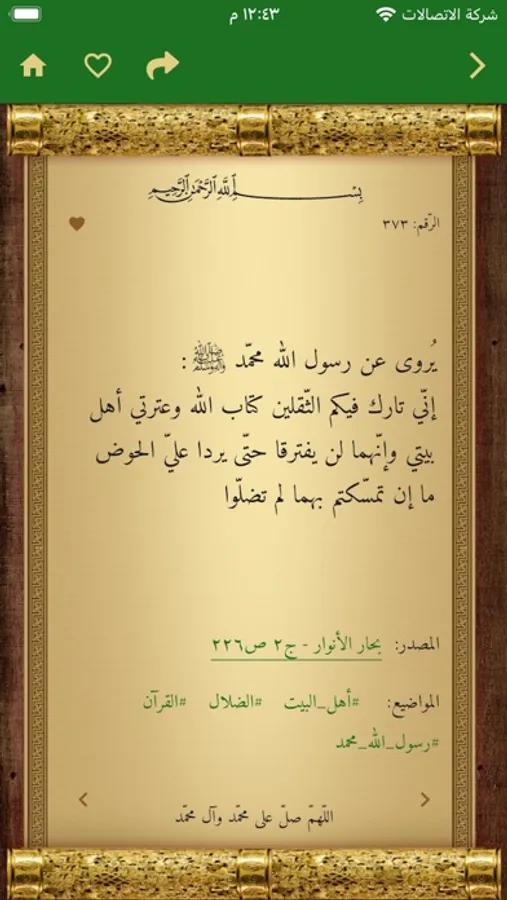 شركة الاتصالات ١٢:٤٣ م
بِسْمِ اللَّهِ الرَّحْمَٰنِ الرَّحِيمِ
الرّقم: ٣٧٣
يُروى عن رسول الله محمّد ﷺ :
إنّي تارك فيكم الثّقلين كتاب الله وعترتي أهل
بيتي وإنّهما لن يفترقا حتّى يردا عليّ الحوض
ما إن تمسّكتم بهما لم تضلّوا
المصدر: بحار الأنوار - ج٢ ص٢٢٦
المواضيع: #أهل_البيت #الضلال #القرآن
#رسول_الله_محمد
اللّهمّ صلّ على محمّد وآل محمّد